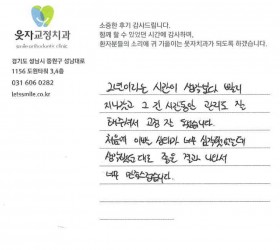 소중한 후기 감사드립니다.
함께 할 수 있었던 시간에 감사하며,
환자분들의 소리에 귀 기울이는 웃자치과가 되도록 하겠습니다.
웃자교정치과
smile orthodontic clinic
경기도 성남시 중원구 성남대로
1156 도원타워 3,4층
031 606 0282
letssmile.co.kr
2년이라는 시간이 생각보다 빨리
지나갔고 그 긴 시간동안 관리도 잘
해주셔서 교정 잘 됐습니다.
처음에 이빨 상태가 너무 심각했는데
생각했던 대로 좋은 결과 나와서
너무 만족스럽습니다.